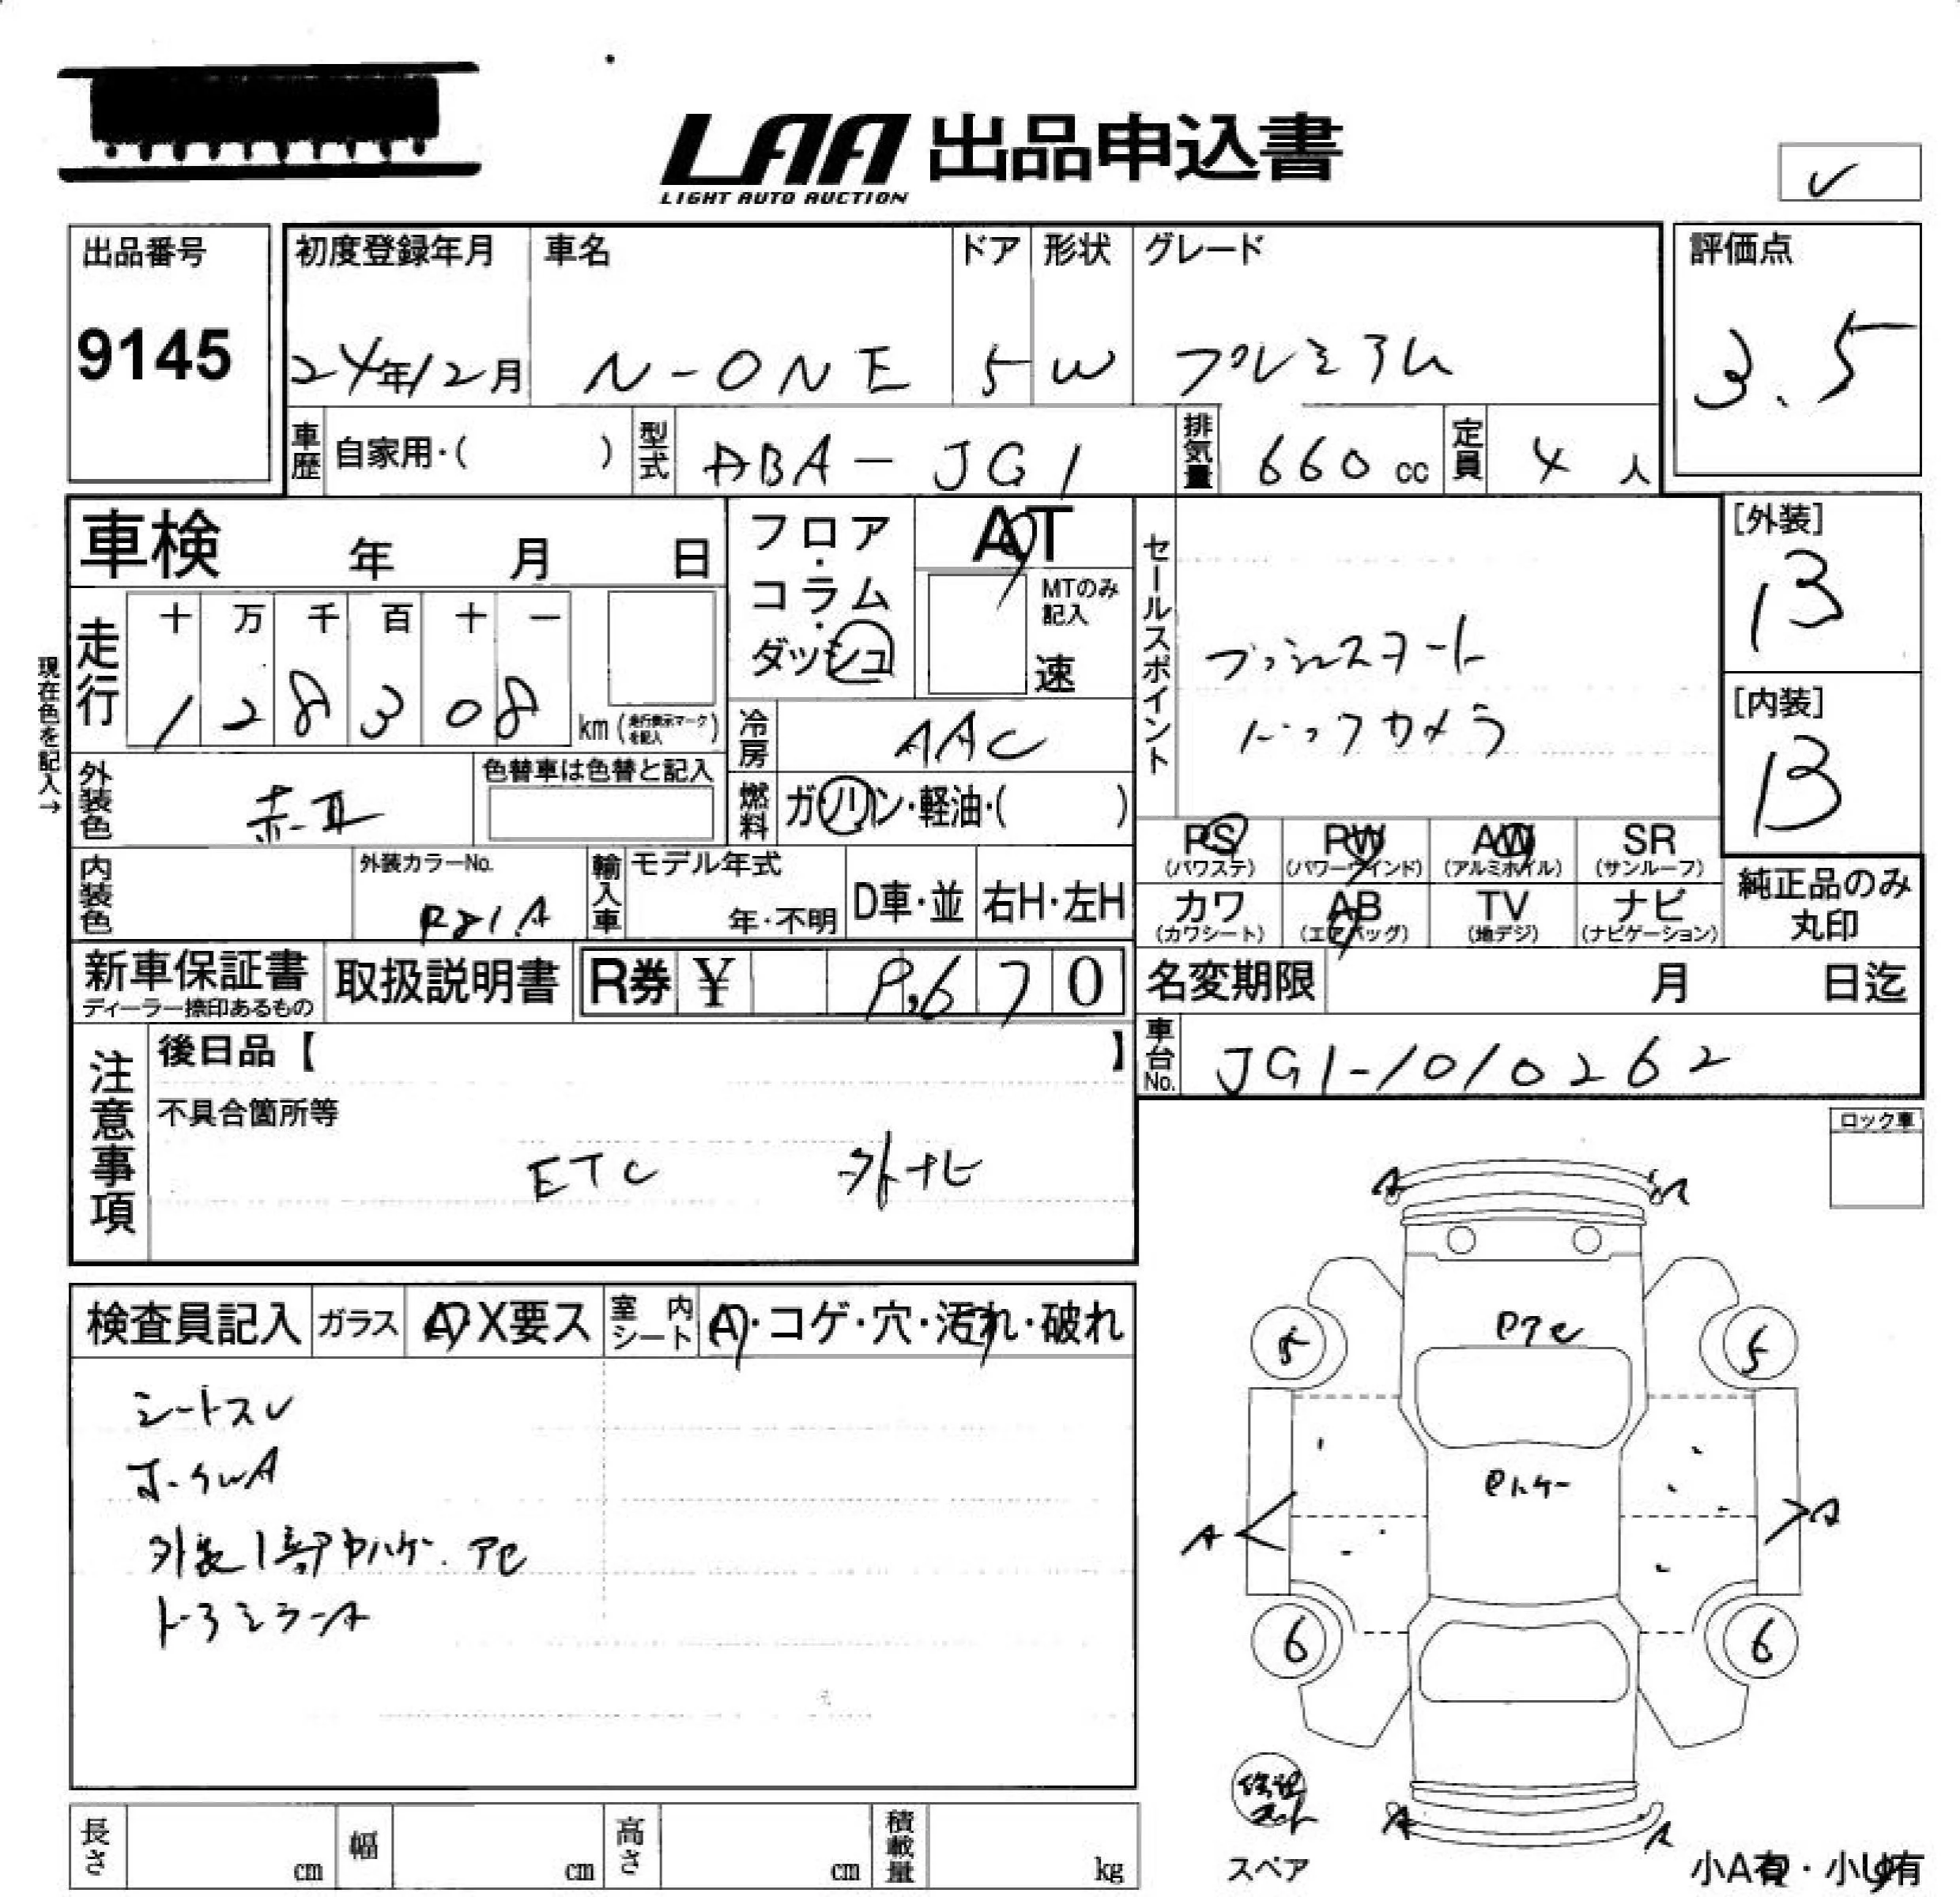 LAA 出品申込書
LIGHT AUTO AUCTION
出品番号
9145
初度登録年月
24年12月
車名
N-ONE
ドア
5
形状
W
グレード
プレミアム
評価点
3.5
車歴
自家用・( )
型式
DBA-JG1
排気量
660 cc
定員
4 人
車検 年 月 日
フロア・コラム・ダッシュ
AT
MTのみ記入
速
セールスポイント
プッシュスタート
バックカメラ
[外装]
B
[内装]
B
現在色を記入→
走行
十 万 千 百 十 一
1 2 8 3 0 8
km (走行表示マークを記入)
冷房
AAC
外装色
赤II
色替車は色替と記入
燃料
ガソリン・軽油・( )
PS (パワステ)
PW (パワーウインド)
AW (アルミホイル)
SR (サンルーフ)
カワ (カワシート)
AB (エアバッグ)
TV (地デジ)
ナビ (ナビゲーション)
純正品のみ丸印
内装色
外装カラーNo.
R81.A
輸入車
モデル年式
年・不明
D車・並
右H・左H
新車保証書
ディーラー捺印あるもの
取扱説明書
R券 ¥ 9,670
名変期限 月 日迄
車台No.
JG1-1010262
注意事項
後日品【 】
不具合箇所等
ETC 外ナビ
ロック車
検査員記入
ガラス
A・X要ス
室内シート
A・コゲ・穴・汚れ・破れ
シートスレ
ホイルA
外装1部 ハゲ. アセ
ドアミラーA
A A
アセ
5 5
A A
6 6
A A
スペア
小A有・小U有
長さ cm
幅 cm
高さ cm
積載量 kg